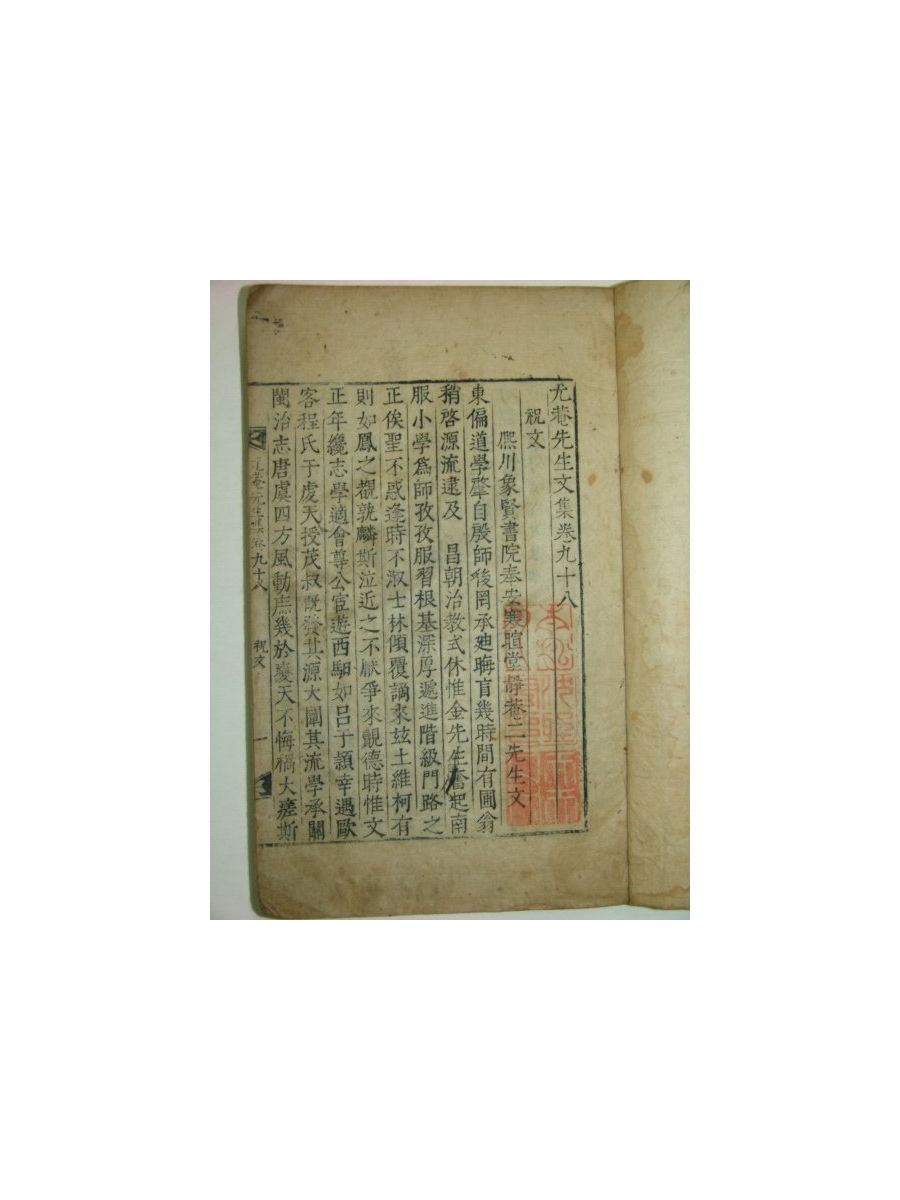 尤菴先生文集卷九十八
祝文
熙川象賢書院奉安寒暄堂靜菴二先生文
東偏道學肇自殷師後罔承廸晦盲幾時間有圃翁
稍啓源流逮及 昌朝治敎式休惟金先生奮起南
服小學爲師孜孜服習根基深厚遞進階級門路之
正俟聖不惑逢時不淑士林傾覆謫來玆土維柯有
則如鳳之覩孰麟斯泣近之不厭爭來覿德時惟文
正年纔志學適會尊公官遊西馹如呂于潁幸遇歐
客程氏于虔天授茂叔旣發其源大闡其流學承關
閩治志唐虞四方風動庶幾於變天不悔禍大瘥斯
菴先生 九十八 祝文 一